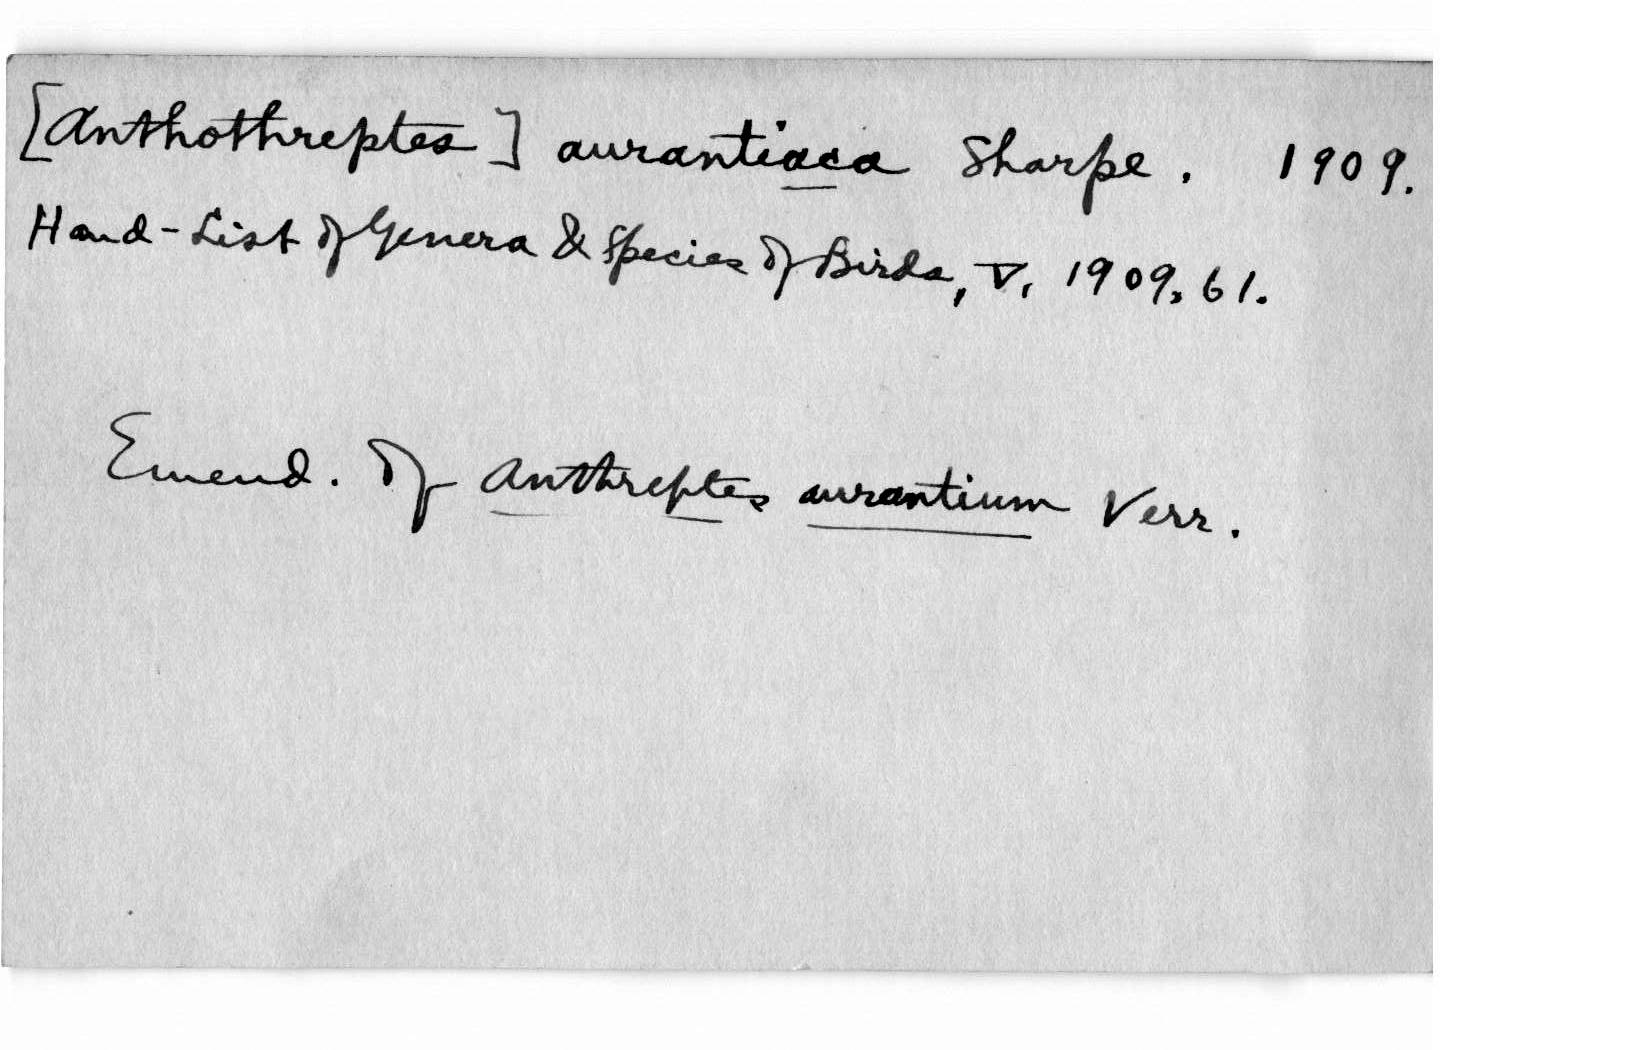 [Anthothreptes] aurantiaca Sharpe. 1909.
Hand-List of Genera & Species of Birds, V, 1909, 61.
Emend. of Anthreptes aurantium Verr.